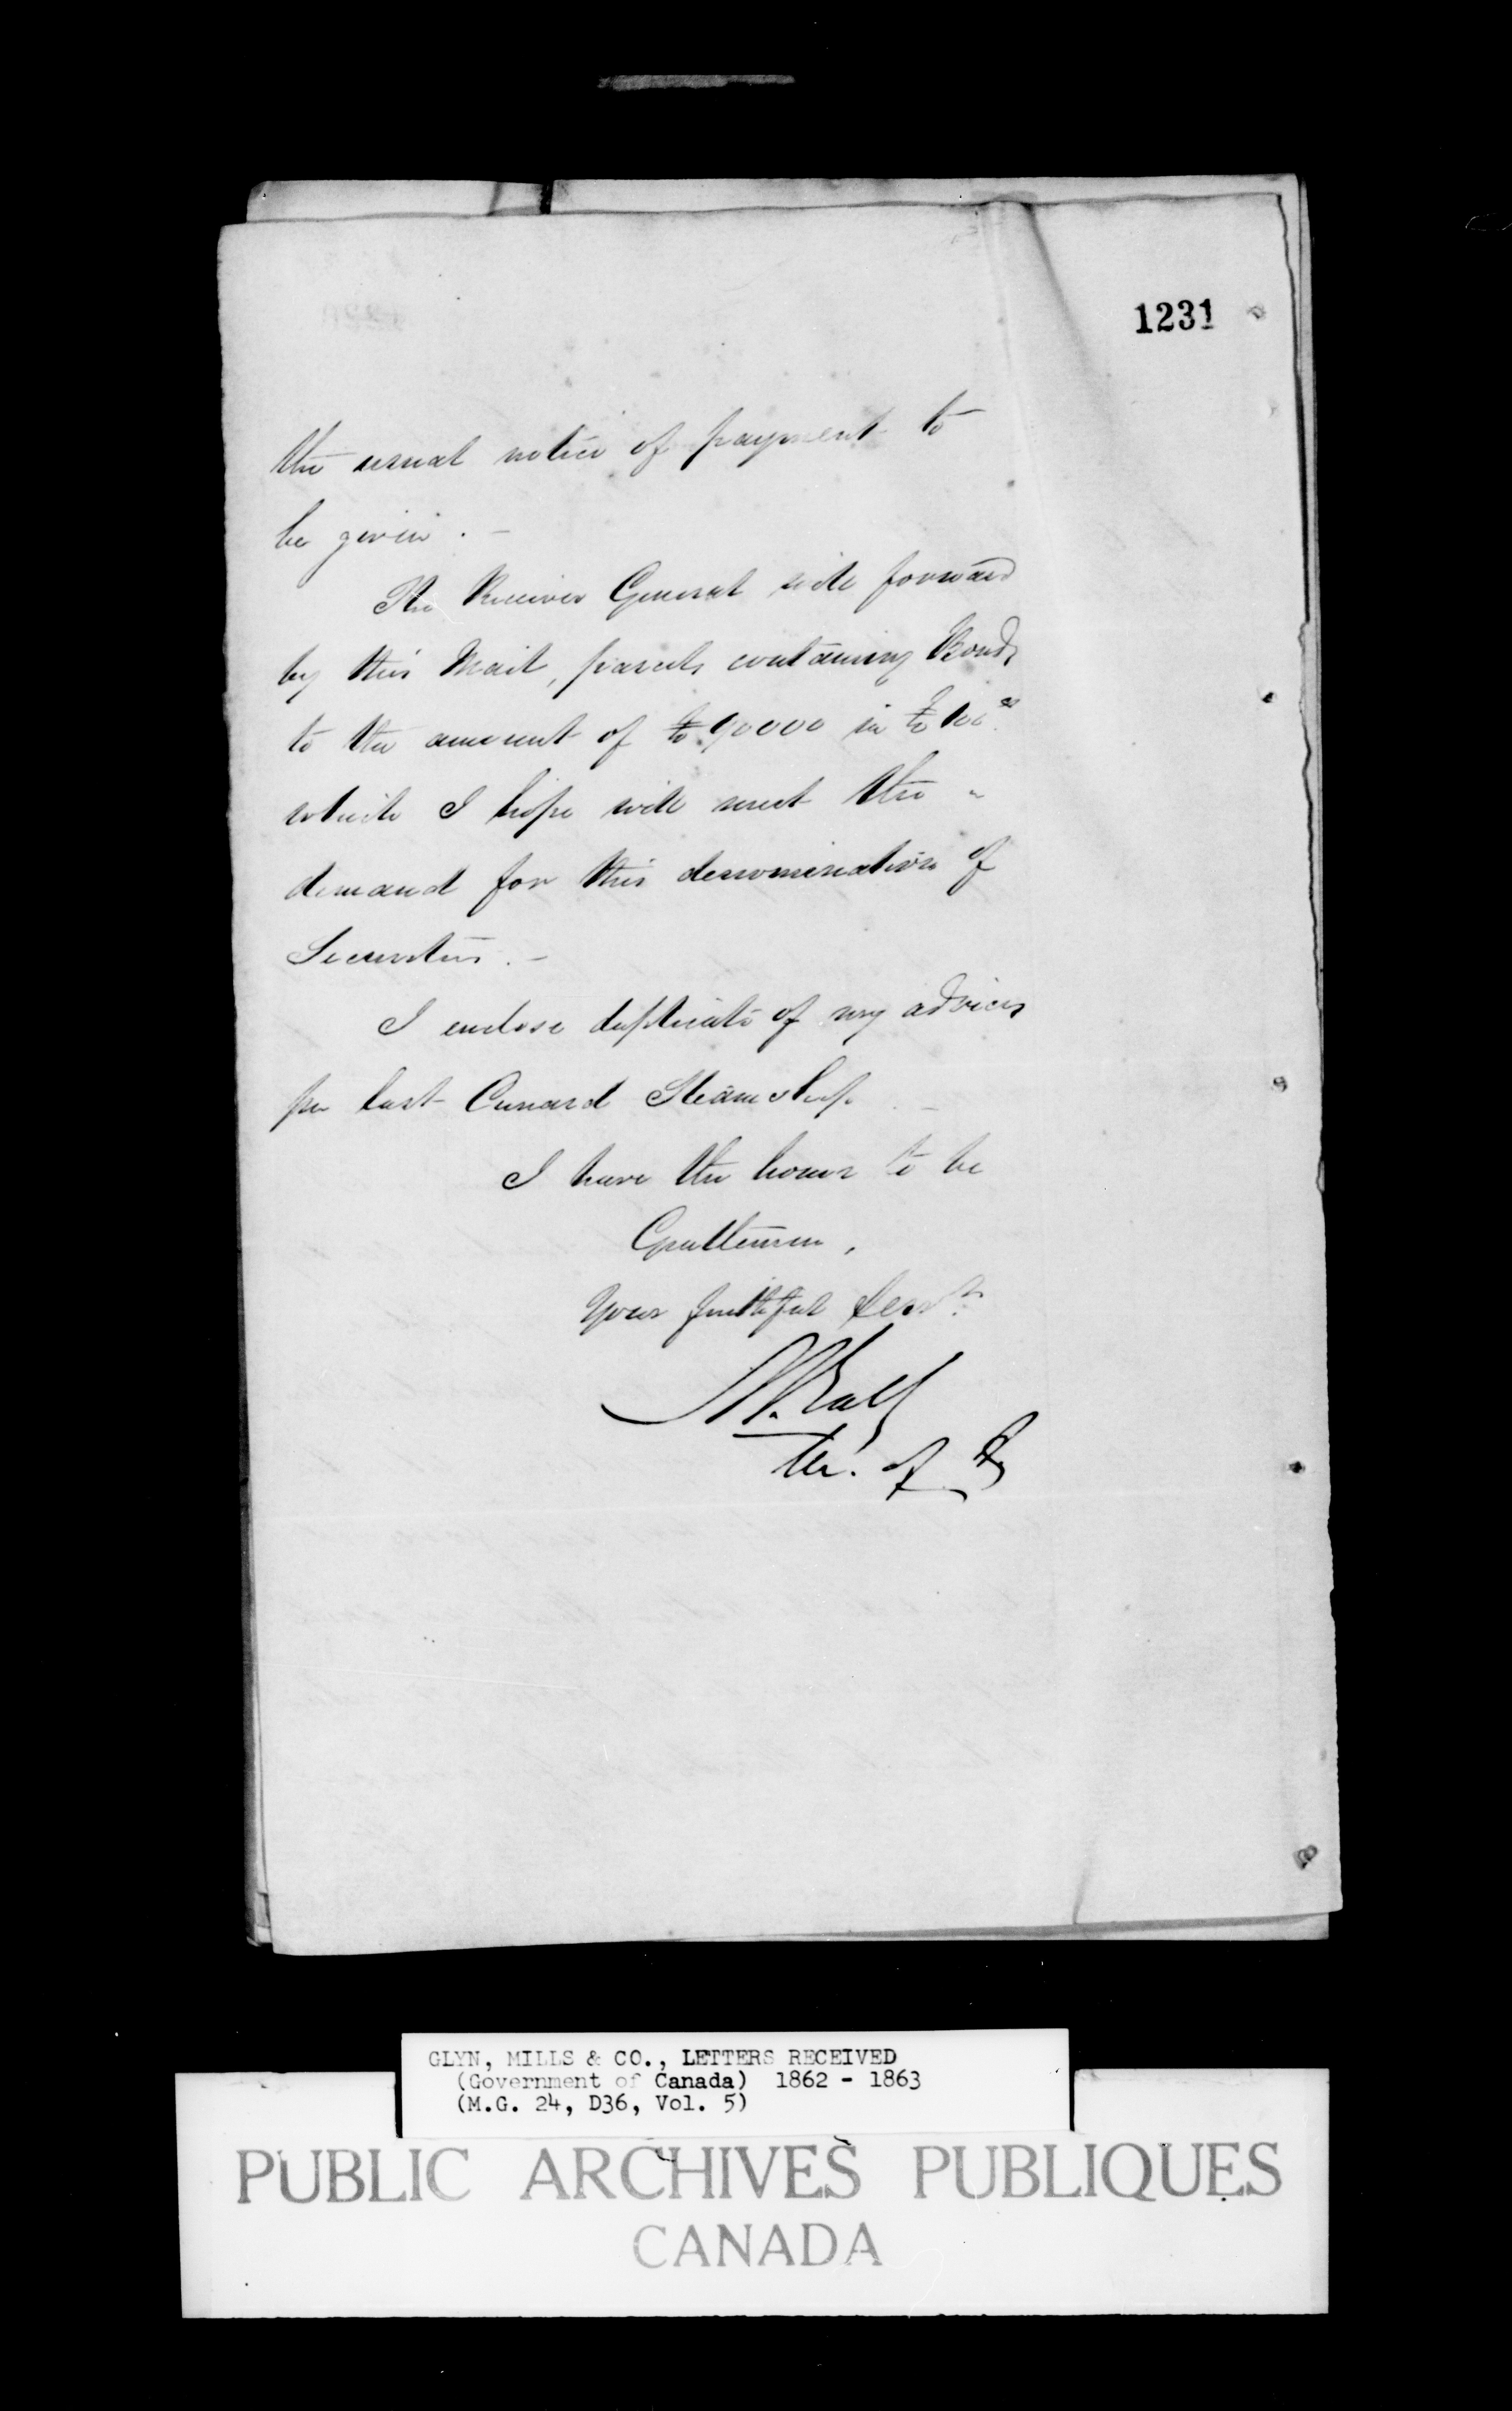 1231
the usual notice of payment to
be given . —
The Receiver General will forward
by this Mail, parcels containing Bonds
to the amount of £90000 in £100.es
which I hope will meet the
demand for this denomination of
Securities . —
I enclose duplicate of my advices
per last Cunard Steam Ship . —
I have the honor to be
Gentlemen ,
Your faithful Servt.
of
GLYN, MILLS & CO., LETTERS RECEIVED
(Government of Canada) 1862 - 1863
(M.G. 24, D36, Vol. 5)
PUBLIC ARCHIVES PUBLIQUES
CANADA